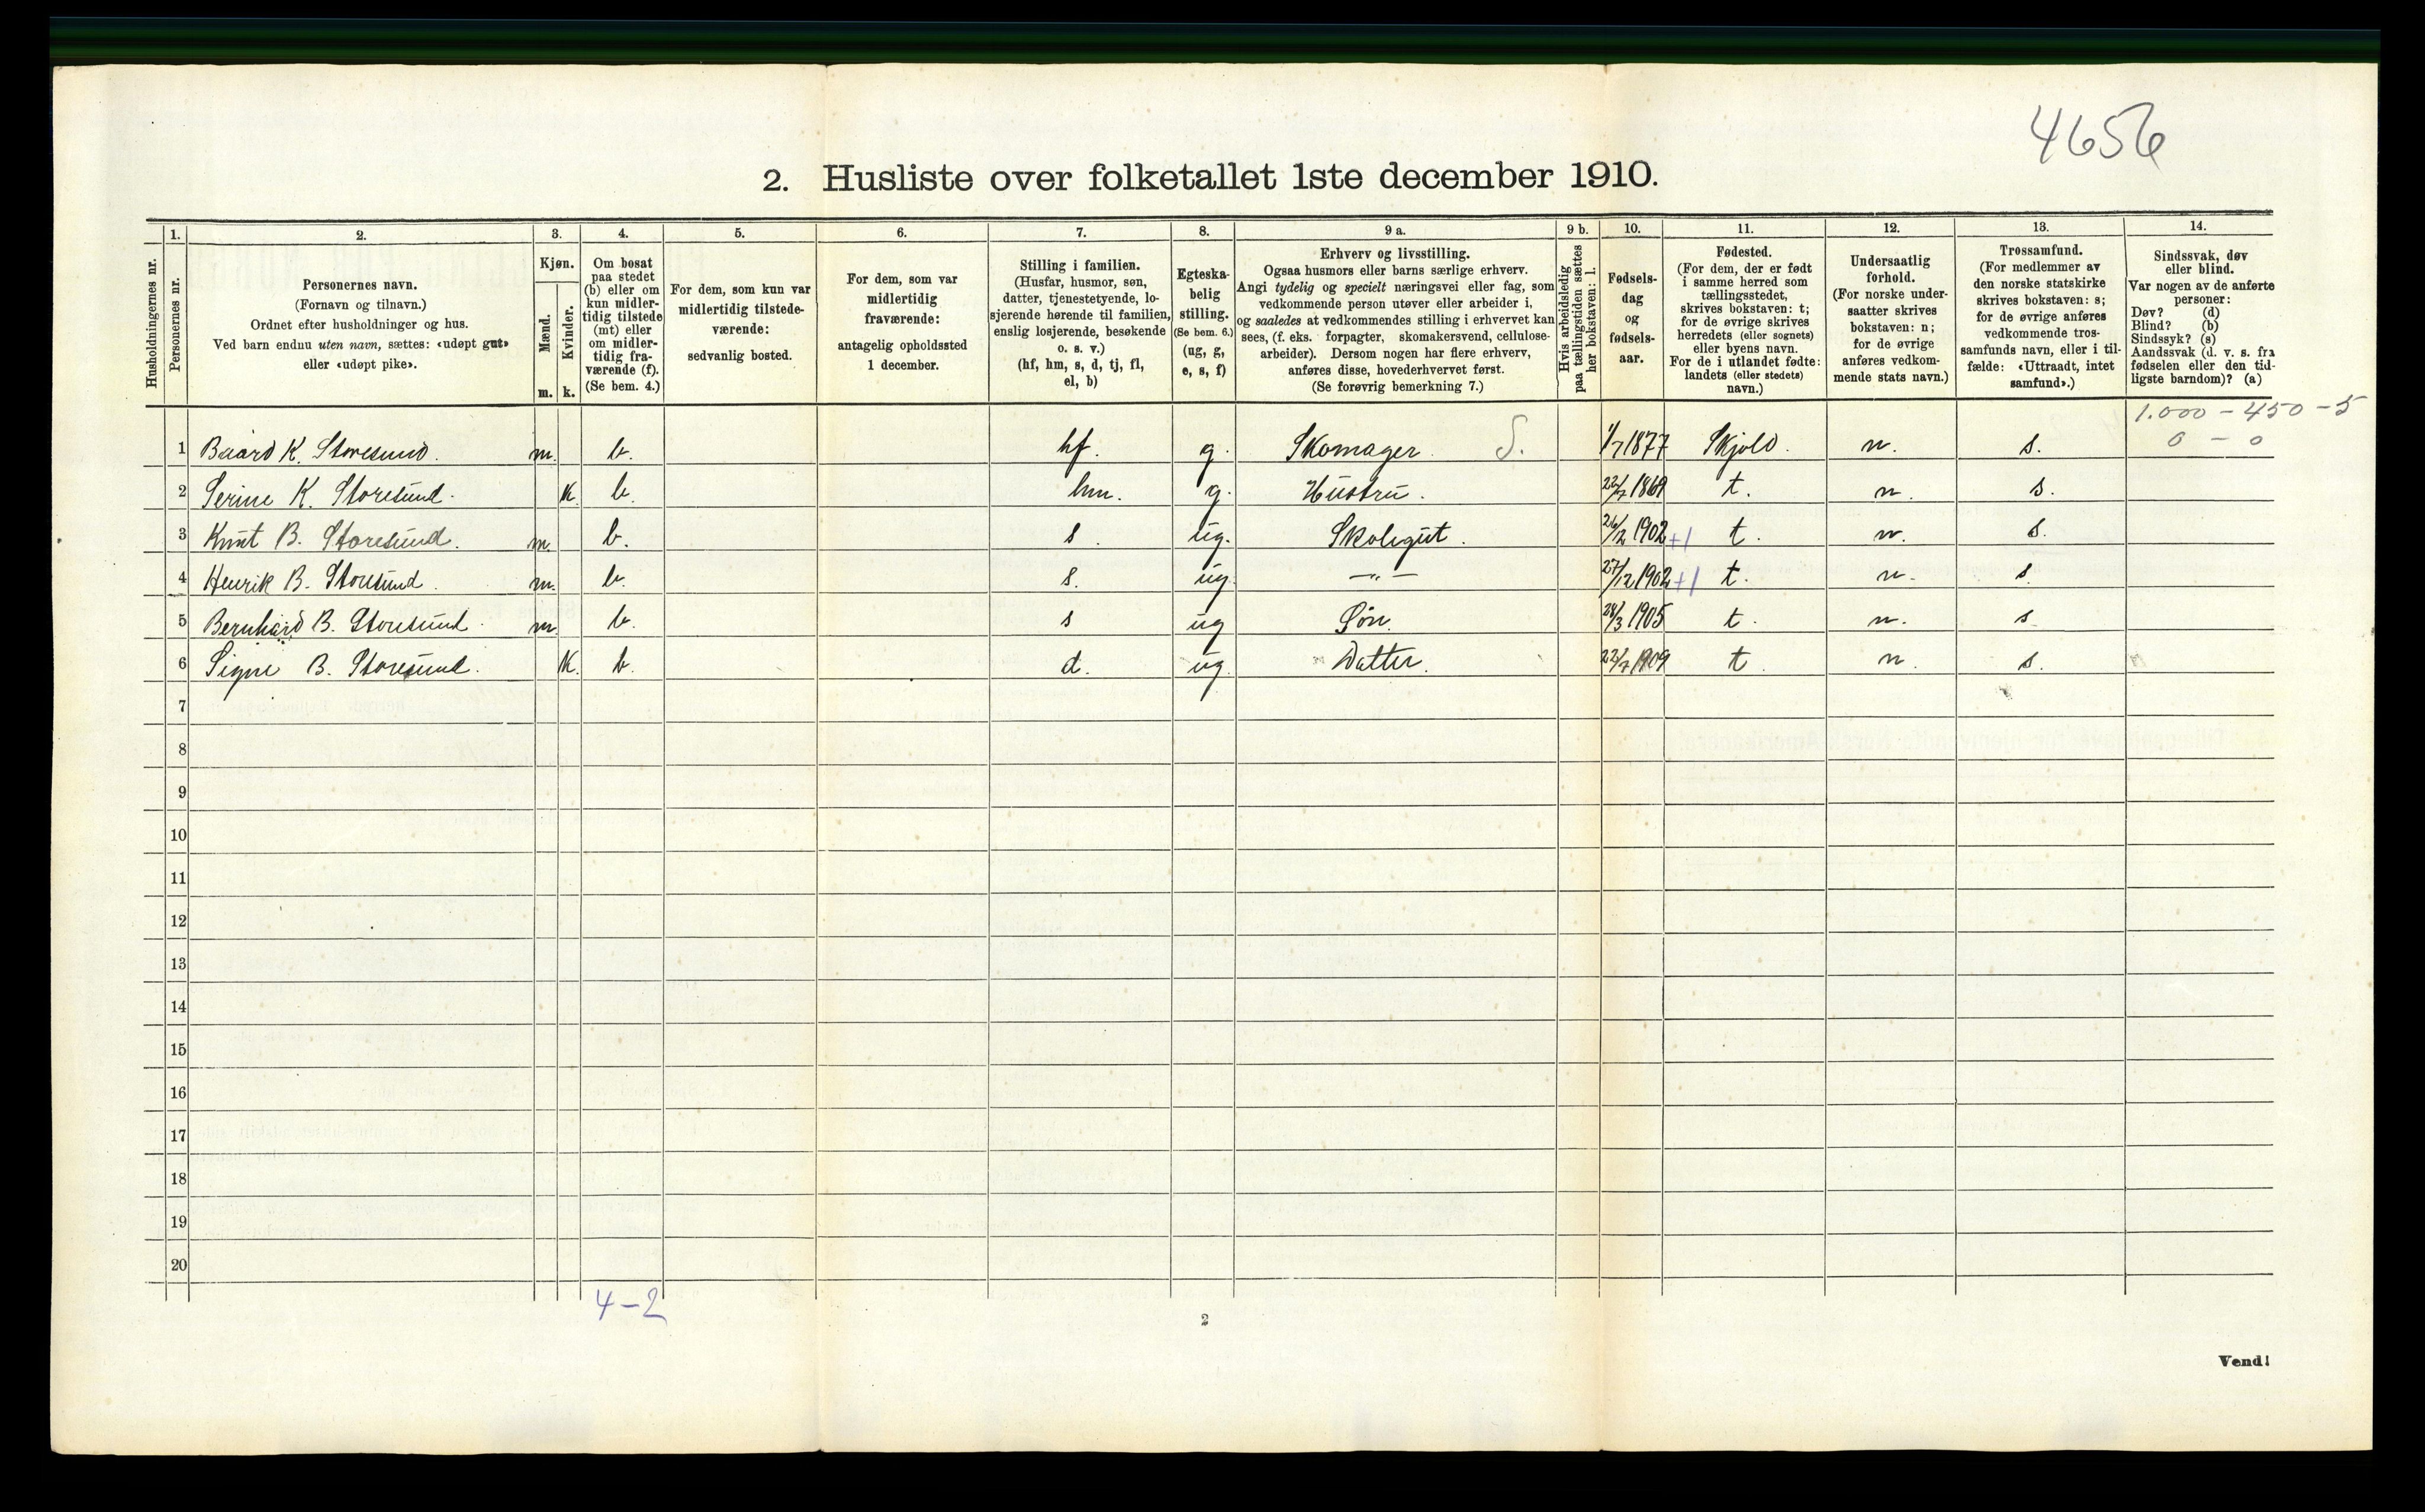 4656
2. Husliste over folketallet 1ste december 1910.
Husholdningernes nr.
1. Personernes nr.
2. Personernes navn. (Fornavn og tilnavn.) Ordnet efter husholdninger og hus. Ved barn endnu uten navn, sættes: «udøpt gut» eller «udøpt pike».
3. Kjøn. Mænd. m. Kvinder. k.
4. Om bosat paa stedet (b) eller om kun midlertidig tilstede (mt) eller om midlertidig fraværende (f). (Se bem. 4.)
5. For dem, som kun var midlertidig tilstedeværende: sedvanlig bosted.
6. For dem, som var midlertidig fraværende: antagelig opholdssted 1 december.
7. Stilling i familien. (Husfar, husmor, søn, datter, tjenestetyende, losjerende hørende til familien, enslig losjerende, besøkende o. s. v.) (hf, hm, s, d, tj, fl, el, b)
8. Egteskabelig stilling. (Se bem. 6.) (ug, g, e, s, f)
9 a. Erhverv og livsstilling. Ogsaa husmors eller barns særlige erhverv. Angi tydelig og specielt næringsvei eller fag, som vedkommende person utøver eller arbeider i, og saaledes at vedkommendes stilling i erhvervet kan sees, (f. eks. forpagter, skomakersvend, cellulosearbeider). Dersom nogen har flere erhverv, anføres disse, hovederhvervet først. (Se forøvrig bemerkning 7.)
9 b. Hvis arbeidsledig paa tællingstiden sættes her bokstaven: l.
10. Fødselsdag og fødselsaar.
11. Fødested. (For dem, der er født i samme herred som tællingsstedet, skrives bokstaven: t; for de øvrige skrives herredets (eller sognets) eller byens navn. For de i utlandet fødte: landets (eller stedets) navn.)
12. Undersaatlig forhold. (For norske undersaatter skrives bokstaven: n; for de øvrige anføres vedkommende stats navn.)
13. Trossamfund. (For medlemmer av den norske statskirke skrives bokstaven: s; for de øvrige anføres vedkommende trossamfunds navn, eller i tilfælde: «Uttraadt, intet samfund».)
14. Sindssvak, døv eller blind. Var nogen av de anførte personer: Døv? (d) Blind? (b) Sindssyk? (s) Aandssvak (d. v. s. fra fødselen eller den tidligste barndom)? (a)
1.000 - 450 - 5
0 - 0
1 Baard K. Storesund. m. b. hf. g. Skomager. S. 1/7 1877 Skjold. n. s.
2 Serine K. Storesund. K. b. hm. g. Hustru. 22/7 1869 t. n. s.
3 Knut B. Storesund. m. b. s. ug. Skolegut. 26/2 1902 +1 t. n. s.
4 Henrik B. Storesund. m. b. s. ug. —„— 27/12 1902 +1 t. n. s.
5 Bernhard B. Storesund. m. b. s ug Søn. 28/3 1905 t. n. s
6 Signe B. Storesund. K. b. d. ug. Datter. 22/7 1909 t. n. s.
7
8
9
10
11
12
13
14
15
16
17
18
19
20
4-2
2
Vend!